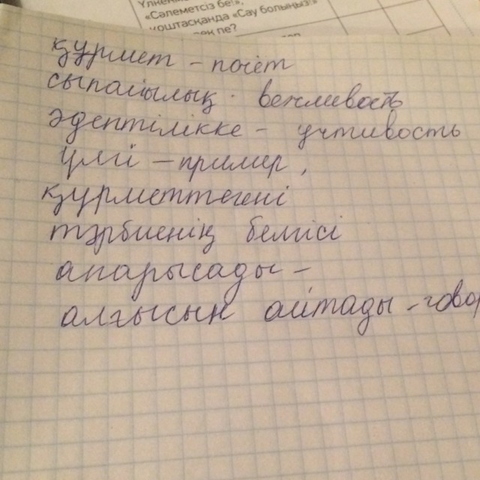 «Сәлеметсіз бе!»,
қоштасқанда «Сау болыңыз!»
құрмет - почёт
сыпайылық - вежливость
әдептілікке - учтивость
үлгі - пример,
құрметтегені
тәрбиенің белгісі
апарысады -
алғысын айтады - говор